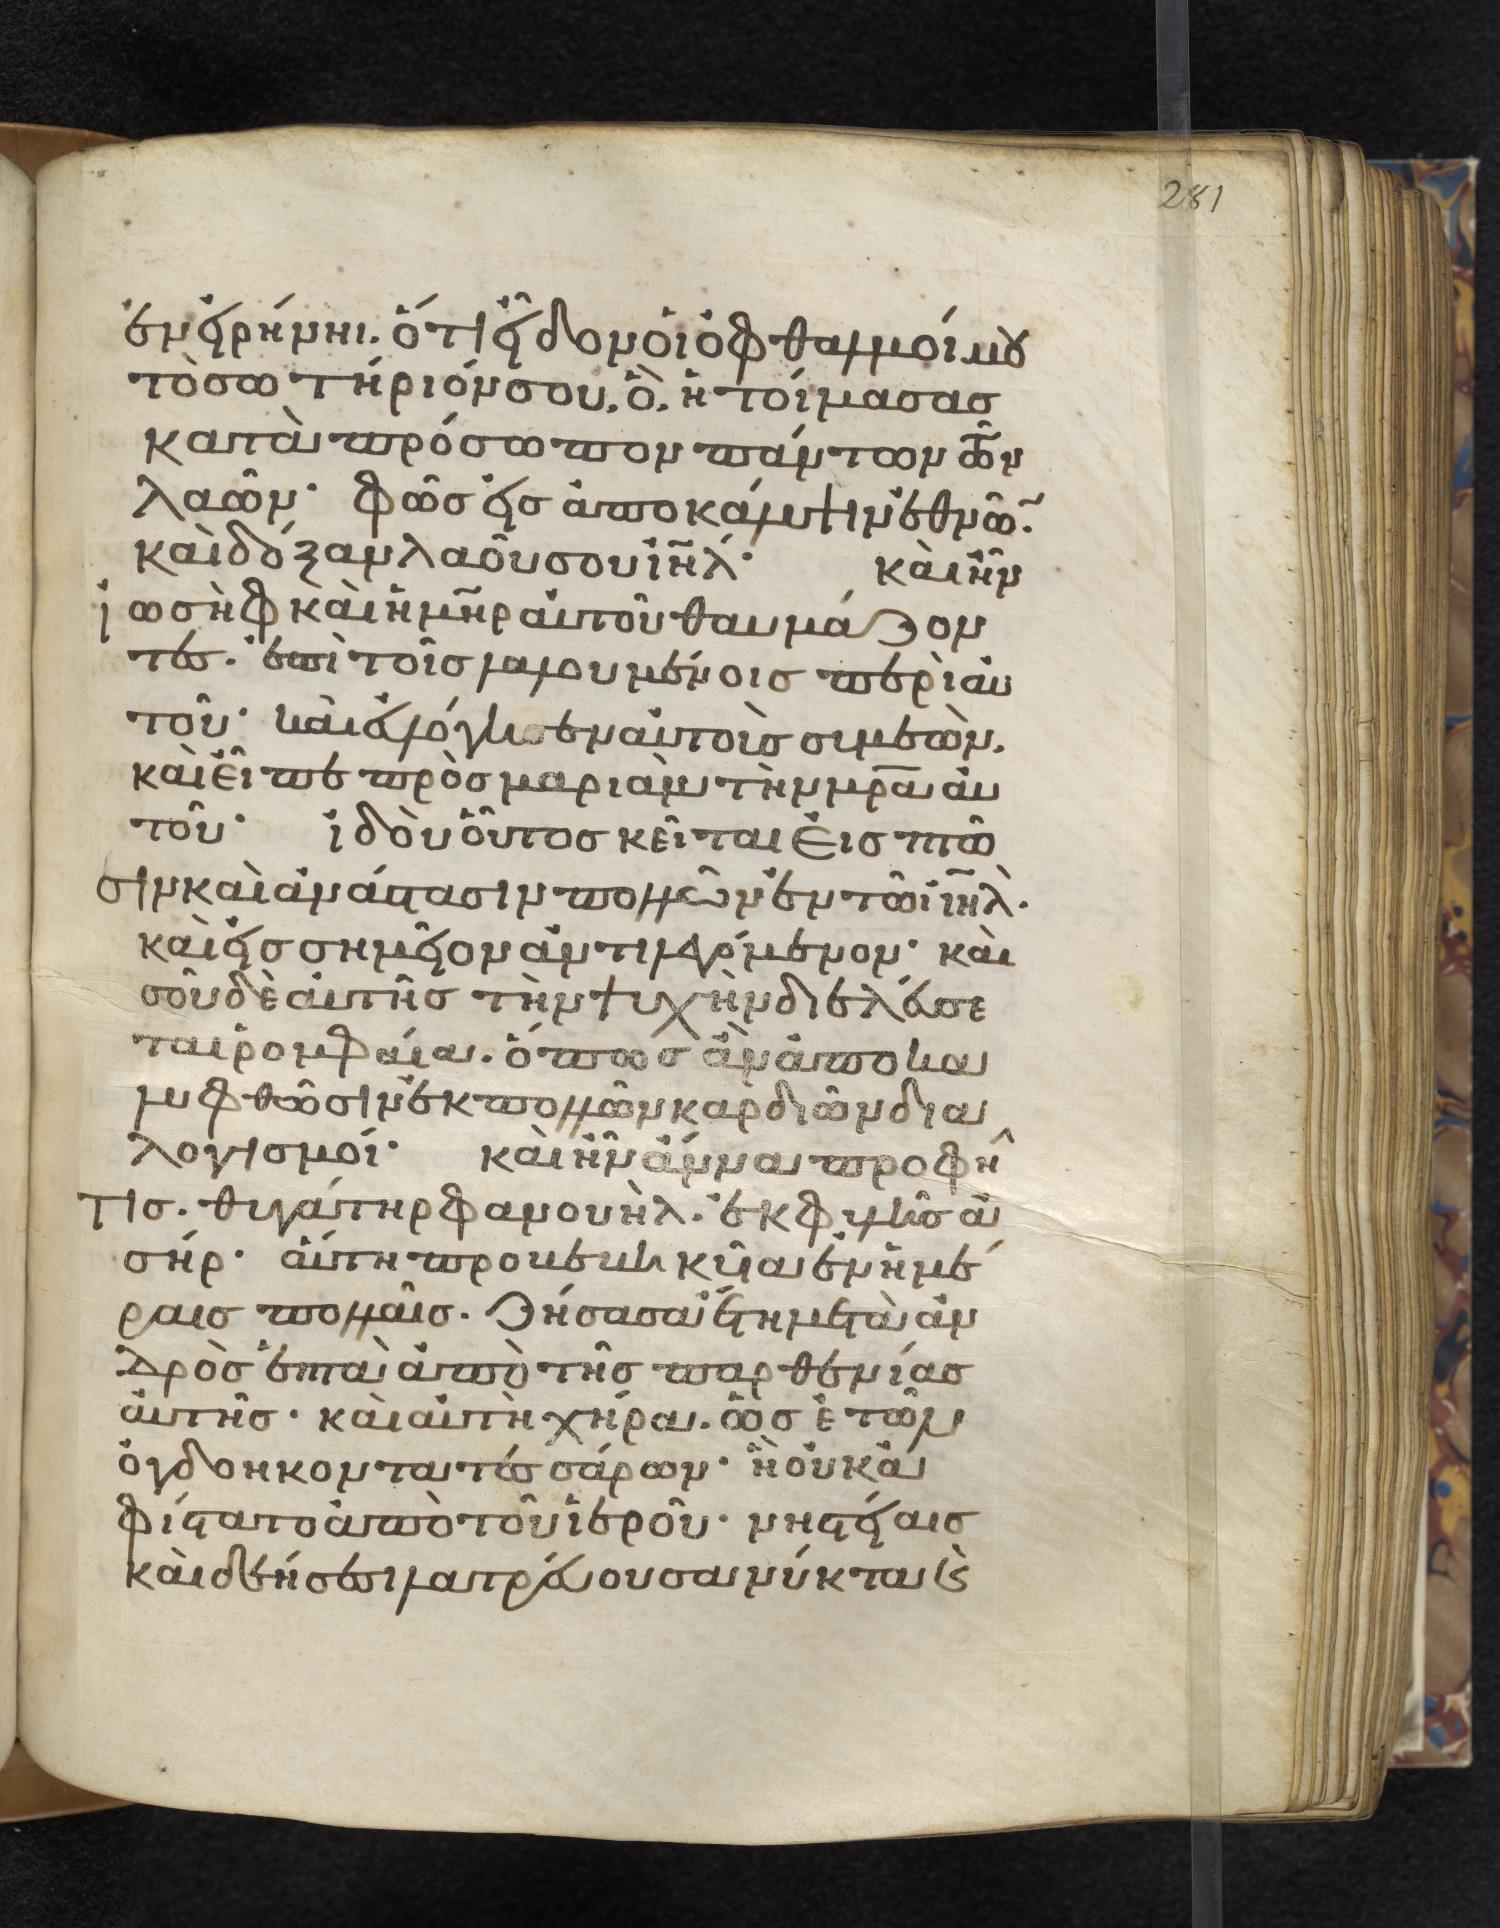 281
ἐν εἰρήνηι. ὅτι εἶδον οἱ ὀφθαλμοί μου
τὸ σωτήριόν σου, ὃ, ἡτοίμασας
κατὰ πρόσωπον πάντων τῶν
λαῶν· φῶς εἰς ἀποκάλυψιν ἐθνῶ̅.
καὶ δόξαν λαοῦ σου ἰη̅λ· καὶ ἦν
ἰωσὴφ καὶ ἡ μη̅ρ αὐτοῦ θαυμάζον
τες. ἐπὶ τοῖς λαλουμένοις περὶ αὐ
τοῦ· καὶ εὐλόγησεν αὐτοὺς συμεὼν,
καὶ εἶπε πρὸς μαριὰμ τὴν μρ̅α αὐ
τοῦ· ἰδοὺ οὗτος κεῖται εἰς πτῶ
σιν καὶ ἀνάστασιν πολλῶν ἐν τῶ ἰη̅λ.
καὶ εἰς σημεῖον ἀντιλεγόμενον· καὶ
σοῦ δὲ αὐτῆς τὴν ψυχὴν διελεύσε
ται ῥομφαία. ὅπως ἂν ἀποκα
λυφθῶσιν ἐκ πολλῶν καρδιῶν δια
λογισμοί· καὶ ἦν ἄννα προφῆ
τις. θυγάτηρ φανουὴλ. ἐκ φυλῆς ἀ
σήρ· αὕτη προβεβηκυῖα ἐν ἡμέ
ραις πολλαῖς. ζήσασα ἔτη μετὰ ἀν
δρὸς ἑπτὰ ἀπὸ τῆς παρθενίας
αὐτῆς· καὶ αὐτὴ χήρα. ὡς ἐτῶν
ὀγδοηκοντατεσσάρων· ἣ οὐκ ἀ
φίστατο ἀπὸ τοῦ ἱεροῦ· νηστείαις
καὶ δεήσεσι λατρεύουσα νύκτα κ̀